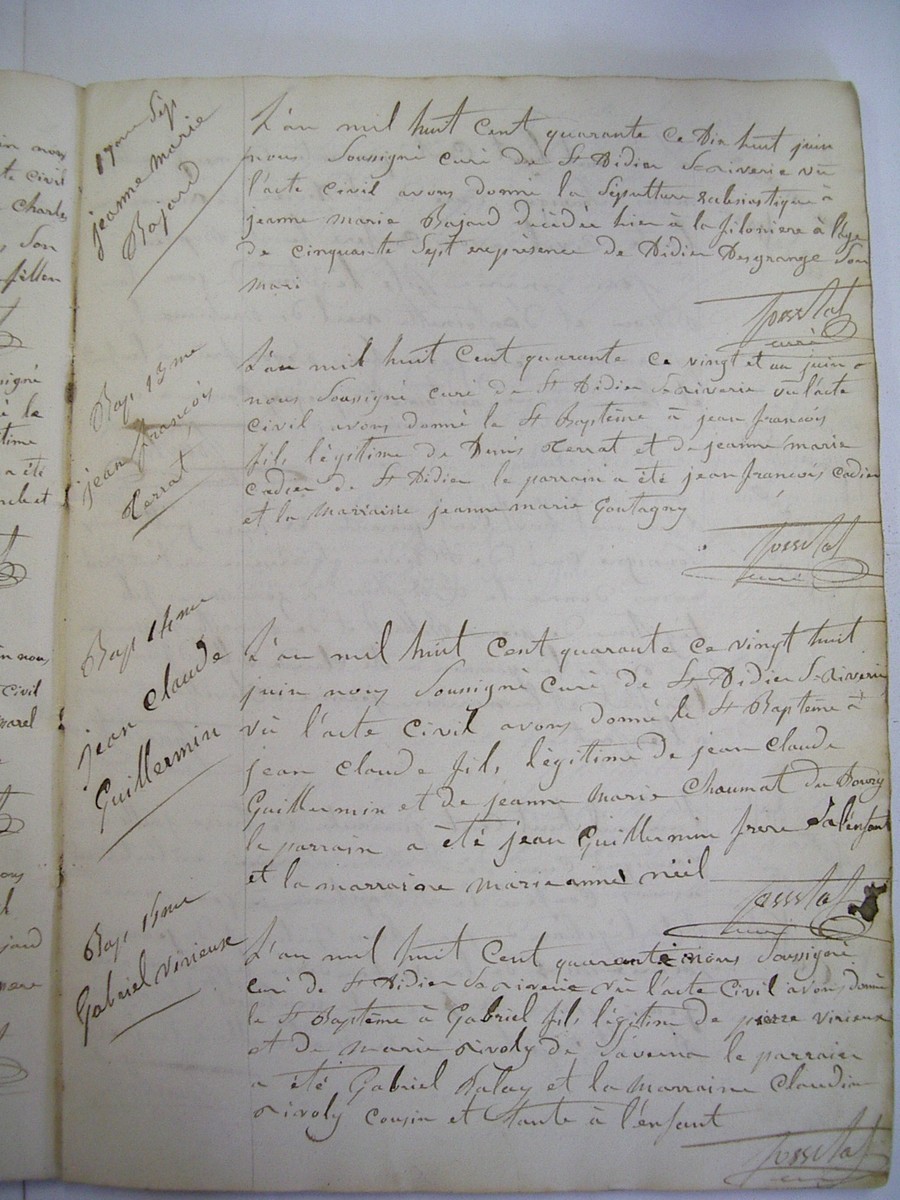 17me Sep
jeanne marie
Bajard
L'an mil huit cent quarante ce Dix huit juin
nous Soussigné curé de St Didier Sr riverie vu
l'acte civil avons donné la Sépulture Eclesiastique à
jeanne marie Bajard décédée hier à la filoniere à l'age
de cinquante Sept en presence de Didier Desgrange Son
mari
curé
Bap 13me
jean françois
Terrat
L'an mil huit cent quarante ce vingt et un juin
nous Soussigné curé de St Didier Sr riverie vu l'acte
civil avons donné le St Baptême à jean françois
fils légitime de Denis Terrat et de jeanne marie
Cadier de St Didier le parrain a été jean françois cadier
et la Marraine jeanne marie Goutagny
curé
Bap 14me
jean Claude
Guillermin
L'an mil huit cent quarante ce vingt huit
juin nous Soussigné curé de St Didier Sr riverie
vu l'acte civil avons donné le St Baptême à
jean claude fils légitime de jean claude
Guillermin et de jeanne Marie Chaumat du
le parrain a été jean Guillermin frere de l'enfant
et la marraine Marie anne néel
curé
Bap 15me
Gabriel Virieux
L'an mil huit cent quarante nous Soussigné
curé de St Didier Sr riverie vu l'acte civil avons donné
le St Baptême à Gabriel fils légitime de pierre virieux
et de marie rivoly de Saverna le parrain
a été Gabriel Palay et la Marraine Claudine
rivoly cousin et tante à l'enfant